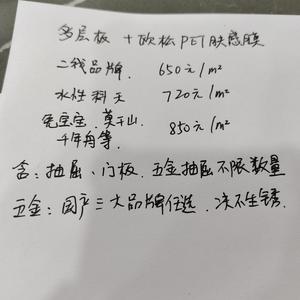 多层板 + 欧松PET肤感膜
二线品牌. 650元/m²
水性科天 720元/m²
兔宝宝.莫干山 850元/m²
千年舟等.
含：抽屉、门板、五金抽屉不限数量
五金：国产三大品牌任选.决不生锈.